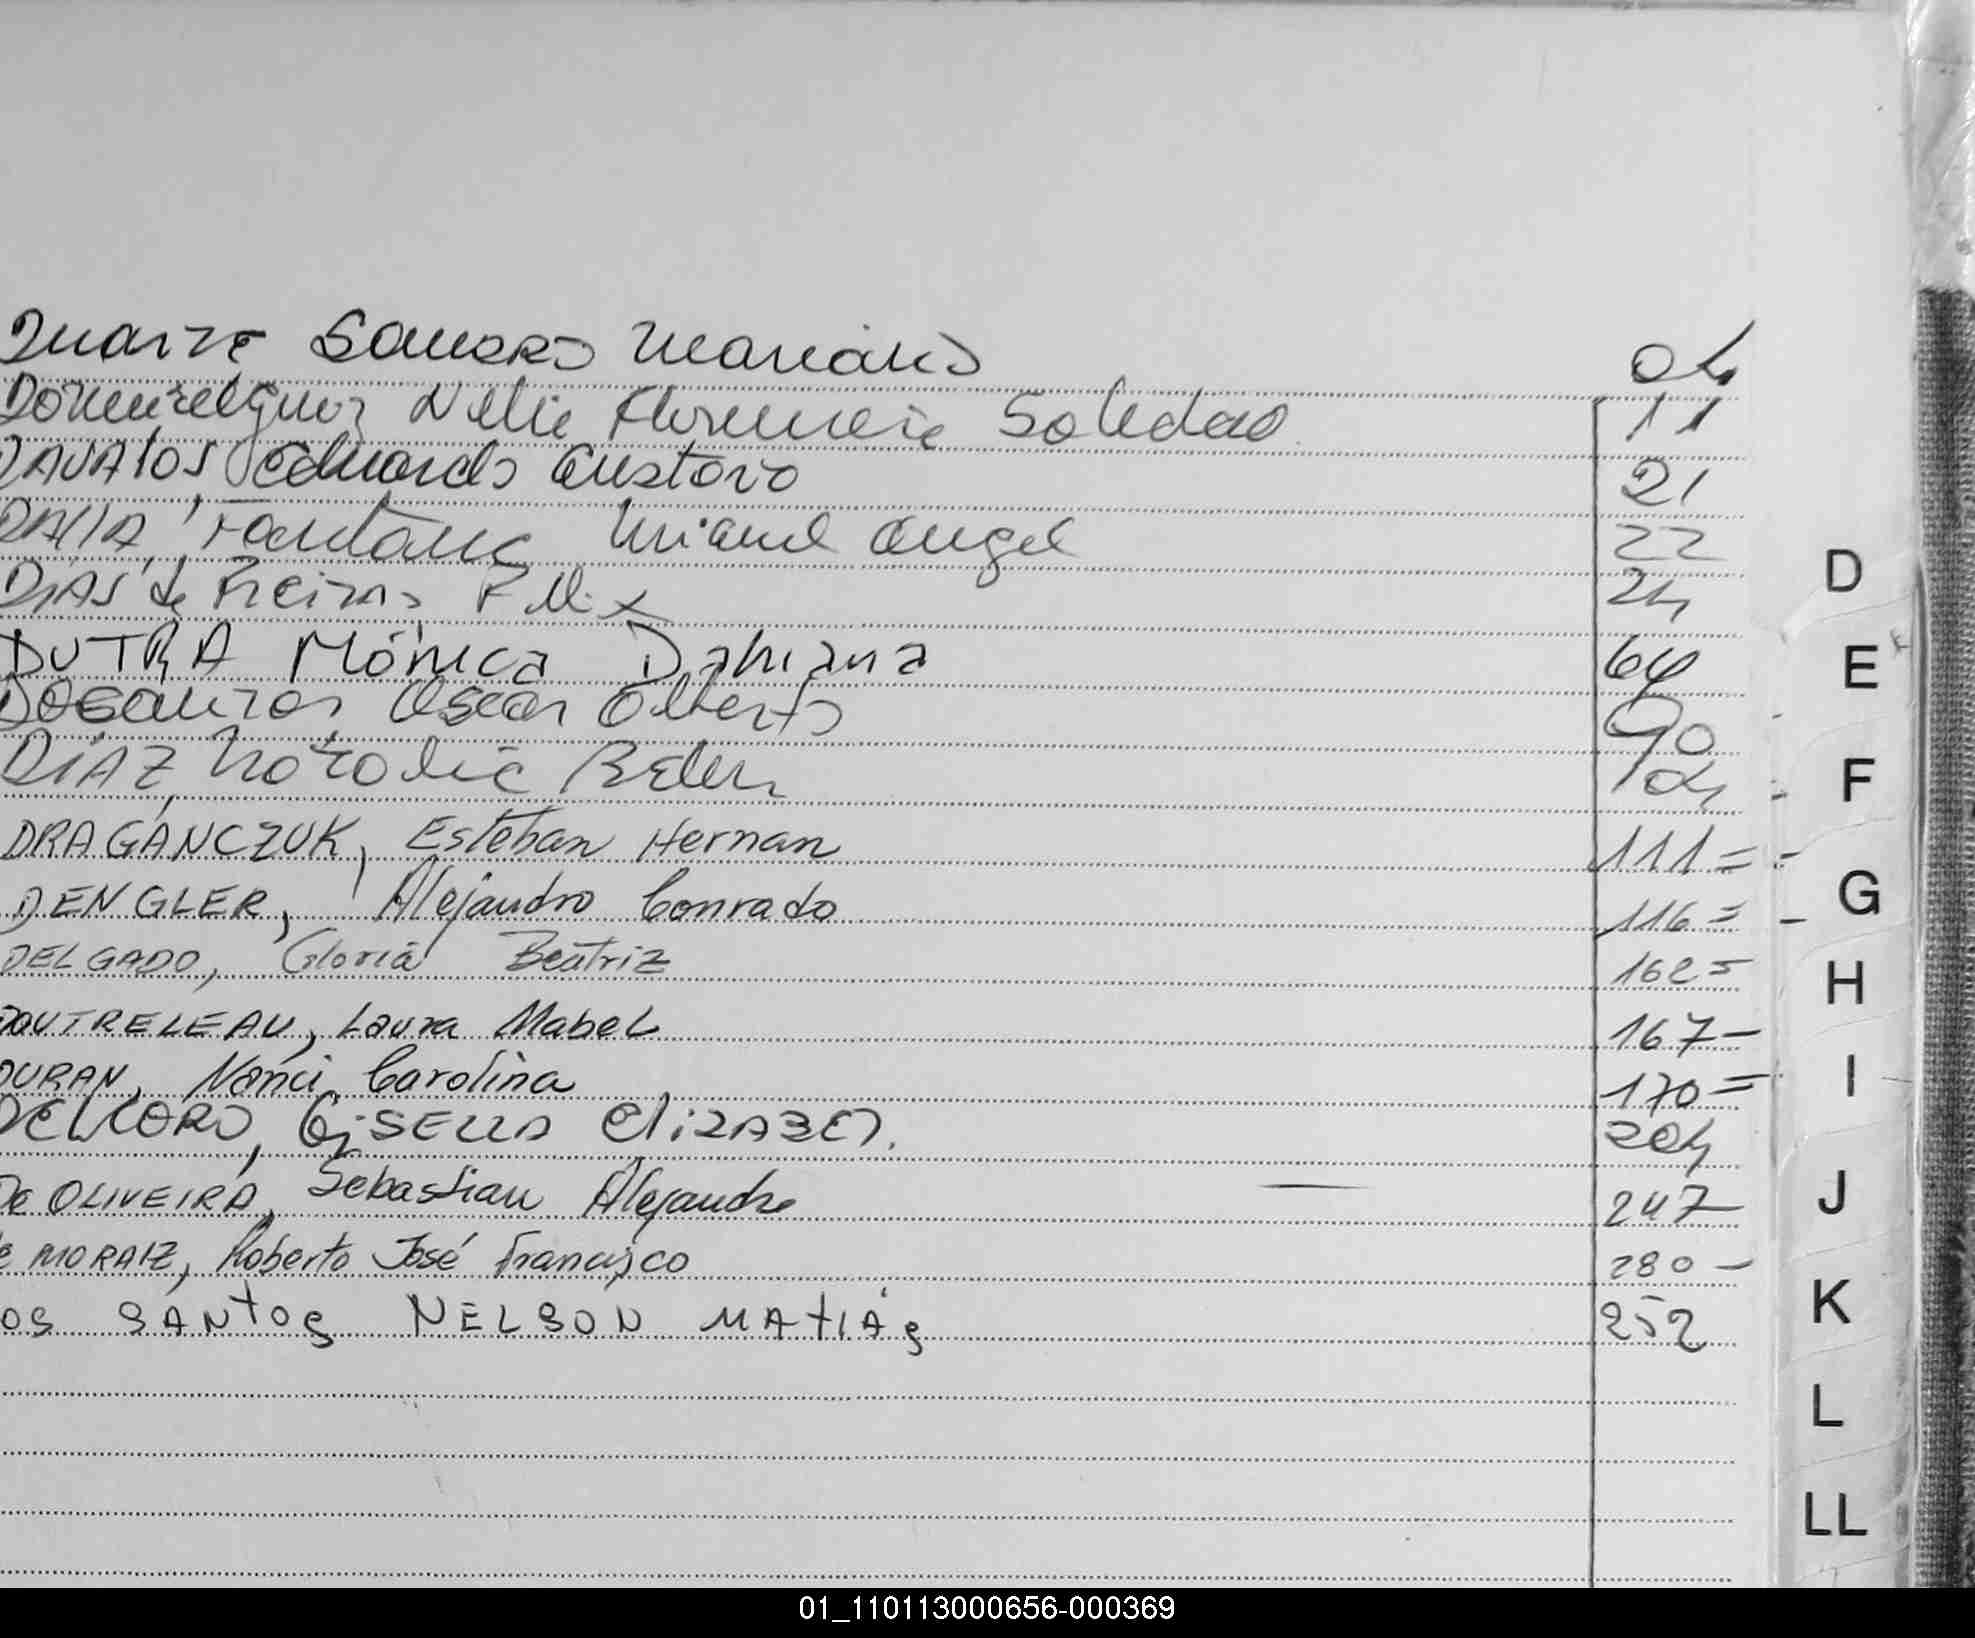 Duarte Sandro Mariano 04
Domínguez Nelie Florencia Soledad 11
DAVALOS, Eduardo Gustavo 21
DALLA Fontana Miguel Angel 22
DIAS de Freitas Felix 24
DUTRA Mónica Damiana 64
Dosantos Oscar Alberto 90
DÍAZ, Natalia Belen 104
DRAGANCZUK, Esteban Hernan 111=
DENGLER, Alejandro Conrado 116=
DELGADO, Gloria Beatriz 162=
DOUTRELEAU, Laura Mabel 167-
DURAN, Nanci Carolina 170=
GISELLA ELIZABET. 204
De OLIVEIRA, Sebastian Alejandro 247-
de MORAIZ, Roberto José Francisco 280-
OS SANTOS NELSON MATIÁS 252
D
E
F
G
H
I
J
K
L
LL
01_110113000656-000369